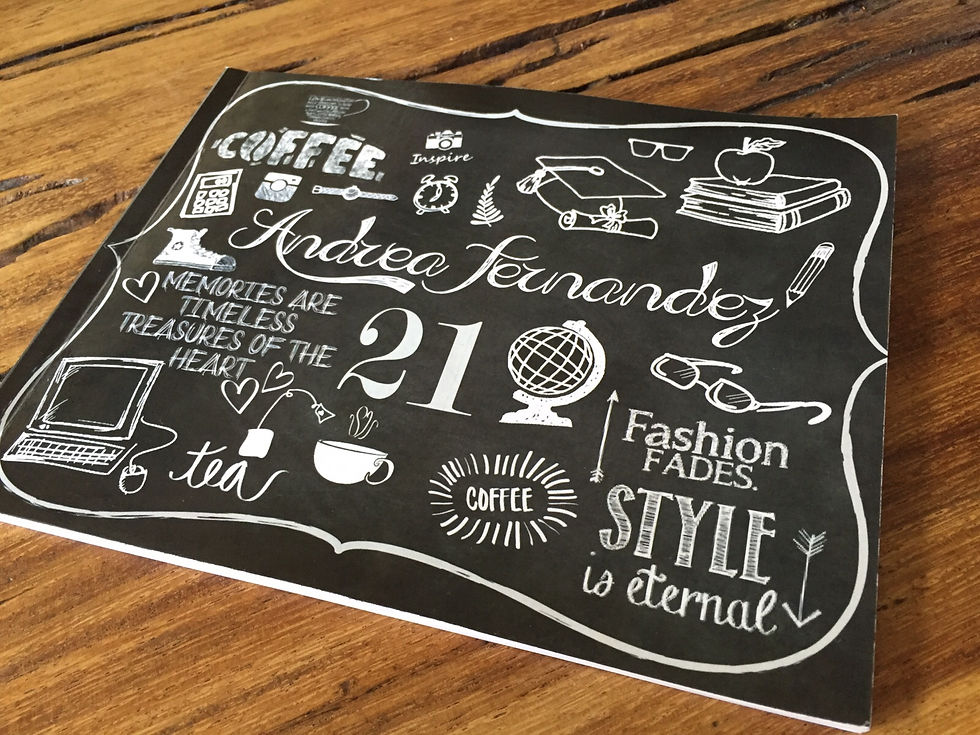 COFFEE
Inspire
Andrea Fernandez
MEMORIES ARE
TIMELESS
TREASURES OF THE
HEART
21
tea
COFFEE
Fashion
FADES.
STYLE
is eternal